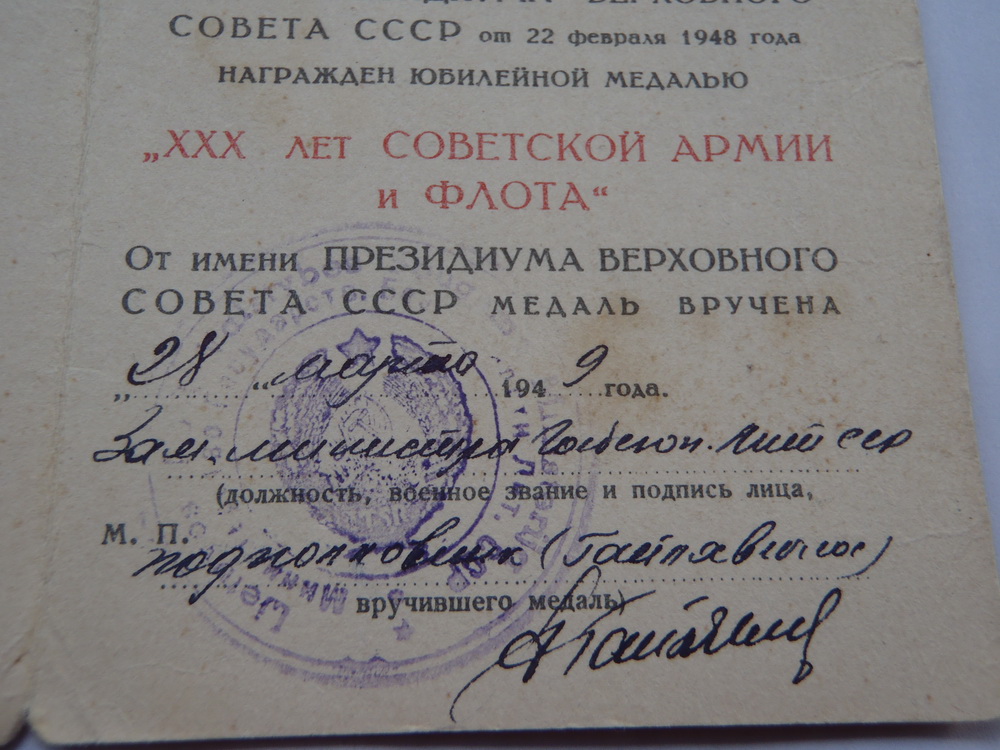 ВЕРХОВНОГО
СОВЕТА СССР от 22 февраля 1948 года
НАГРАЖДЕН ЮБИЛЕЙНОЙ МЕДАЛЬЮ
„XXX ЛЕТ СОВЕТСКОЙ АРМИИ
и ФЛОТА“
От имени ПРЕЗИДИУМА ВЕРХОВНОГО
СОВЕТА СССР МЕДАЛЬ ВРУЧЕНА
„28 „ марта 1949 года.
Зам. министра Госбезоп. Лит ССР
(должность, военное звание и подпись лица,
М. П.
подполковник (Гайлявичюс)
вручившего медаль)